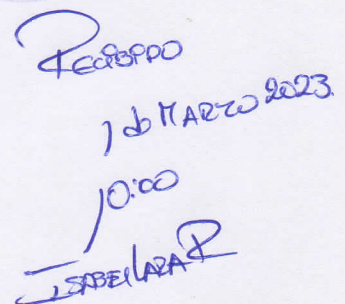 Recibido
1 de MARZO 2023.
10:00
ISABEL LARA R